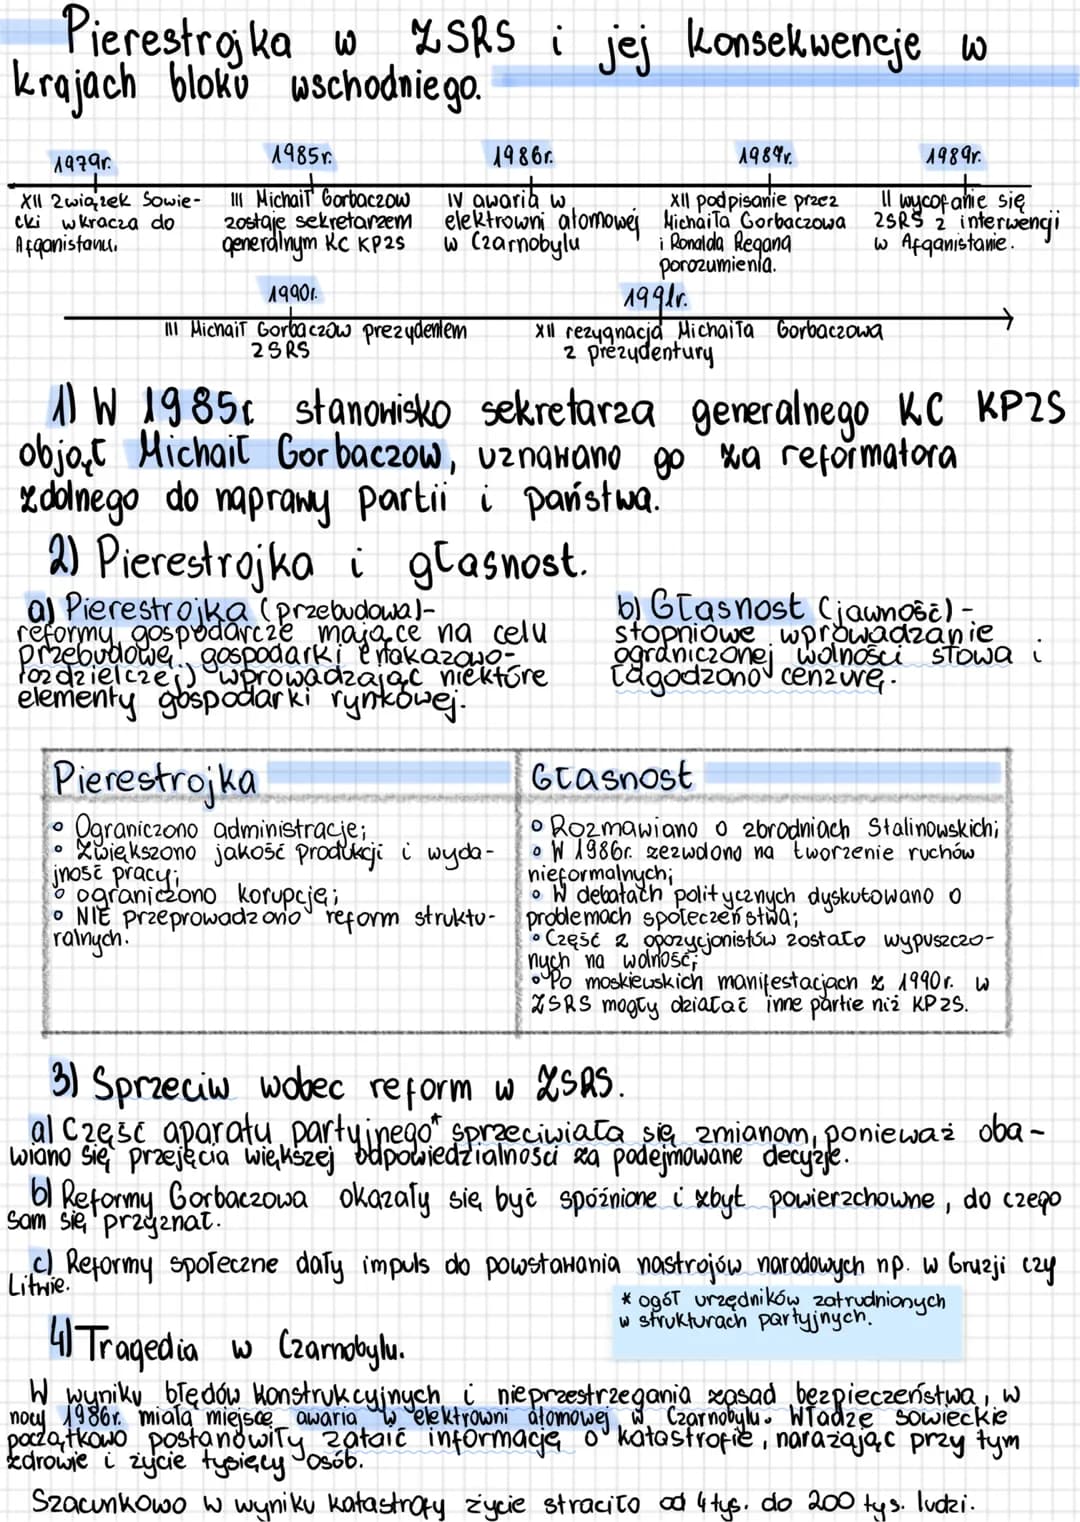 Pierestrojka w ZSRS i jej konsekwencje w
krajach bloku wschodniego.
1979r. 1985r. 1986r. 1987r. 1989r.
XII Związek Sowie-
cki wkracza do
Afganistanu.
III Michaił Gorbaczow
zostaje sekretarzem
generalnym KC KPZS
IV awaria w
elektrowni atomowej
w Czarnobylu
XII podpisanie przez
Michaiła Gorbaczowa
i Ronalda Regana
porozumienia.
II wycofanie się
ZSRS z interwencji
w Afganistanie.
1990r. 1991r.
III Michaił Gorbaczow prezydentem
ZSRS
XII rezygnacja Michaiła Gorbaczowa
z prezydentury
1) W 1985r stanowisko sekretarza generalnego KC KPZS
objął Michaił Gorbaczow, uznawano go za reformatora
zdolnego do naprawy partii i państwa.
2) Pierestrojka i głasnost.
a) Pierestrojka (przebudowa)-
reformy gospodarcze mające na celu
przebudowę gospodarki (nakazowo-
rozdzielczej) wprowadzając niektóre
elementy gospodarki rynkowej.
b) Głasnost (jawność) -
stopniowe wprowadzanie
ograniczonej wolności słowa i
łagodzono cenzurę.
Pierestrojka
• Ograniczono administrację;
• Zwiększono jakość produkcji i wyda-
jność pracy;
• ograniczono korupcję;
• NIE przeprowadzono reform struktu-
ralnych.
Głasnost
• Rozmawiano o zbrodniach Stalinowskich;
• W 1986r. zezwolono na tworzenie ruchów
nieformalnych;
• W debatach politycznych dyskutowano o
problemach społeczeństwa;
• Część z opozycjonistów zostało wypuszczo-
nych na wolność;
• Po moskiewskich manifestacjach z 1990r. w
ZSRS mogły działać inne partie niż KPZS.
3) Sprzeciw wobec reform w ZSRS.
a) Część aparatu partyjnego* sprzeciwiała się zmianom, ponieważ oba-
wiano się przejęcia większej odpowiedzialności za podejmowane decyzje.
b) Reformy Gorbaczowa okazały się być spóźnione i zbyt powierzchowne, do czego
sam się przyznał.
c) Reformy społeczne dały impuls do powstawania nastrojów narodowych np. w Gruzji czy
Litwie.
* ogół urzędników zatrudnionych
w strukturach partyjnych.
4) Tragedia w Czarnobylu.
W wyniku błędów konstrukcyjnych i nieprzestrzegania zasad bezpieczeństwa, w
nocy 1986r. miała miejsce awaria w elektrowni atomowej w Czarnobylu. Władze sowieckie
początkowo postanowiły zataić informację o katastrofie, narażając przy tym
zdrowie i życie tysięcy osób.
Szacunkowo w wyniku katastrofy życie straciło od 4 tys. do 200 tys. ludzi.